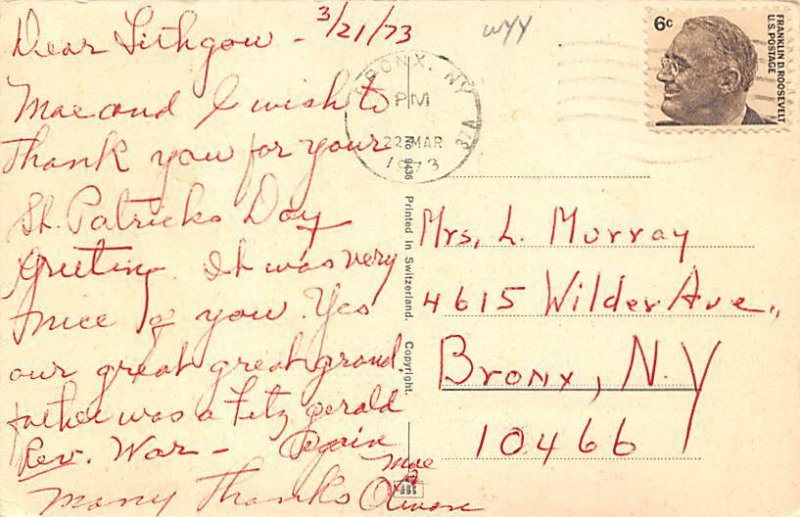 Dear Lithgow - 3/21/73
Mae and I wish to
Thank you for your
St. Patricks Day
Greeting. It was very
nice of you. Yes
our great great grand
father was a Fitzgerald
Rev. War - Again
Many Thanks Mae
&
wyy
BRONX, NY
PM
22 MAR
1973
37A
6c
FRANKLIN D. ROOSEVELT
U.S. POSTAGE
No 9436 Printed in Switzerland. Copyright.
Mrs. L. Murray
4615 Wilder Ave.,
Bronx, N.Y
10466